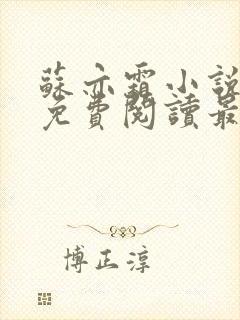 蘇亦霜小說
免費閱讀最
博正淳